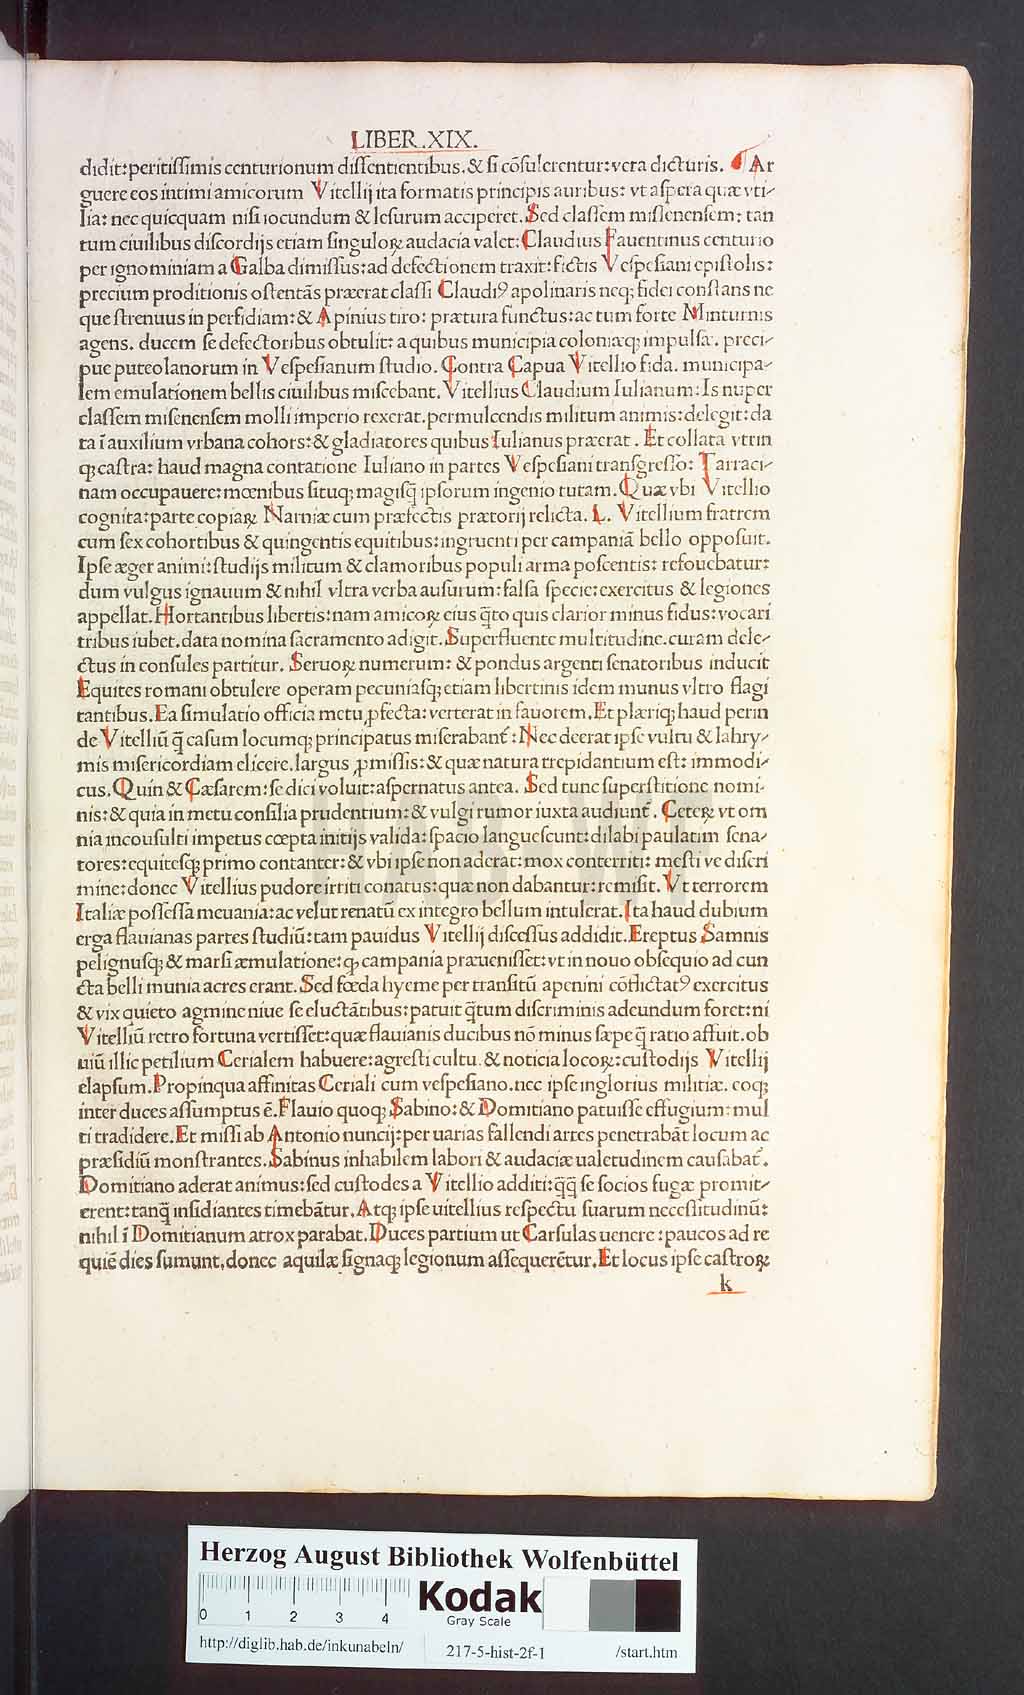 LIBER.XIX.
didit:peritissimis centurionum dissentientibus.& si cõsulerentur:vera dicturis. Ar
guere eos intimi amicorum Vitellij ita formatis principis auribus: vt aspera quæ vti-
lia: nec quicquam nisi iocundum & lesurum acciperet. Sed classem missenensem: tan
tum ciuilibus discordijs etiam singuloꝝ audacia valet: Claudius Fauentinus centurio
per ignominiam a Galba dimissus: ad defectionem traxit: fictis Vespesiani epistolis:
precium proditionis ostentãs præerat classi Claudiꝰ apolinaris neqꝫ fidei constans ne
que strenuus in perfidiam: & Apinius tiro: prætura functus: ac tum forte Minturnis
agens. ducem se defectoribus obtulit: a quibus municipia coloniæqꝫ impulsæ. preci-
pue puteolanorum in Vespesianum studio. Contra Capua Vitellio fida. municipa-
lem emulationem bellis ciuilibus miscebant. Vitellius Claudium Iulianum: Is nuper
classem misenensem molli imperio rexerat. permulcendis militum animis: delegit: da
ta ĩ auxilium vrbana cohors: & gladiatores quibus Iulianus præerat. Et collata vtrin
qꝫ castra: haud magna contatione Iuliano in partes Vespesiani transgresso: Tarraci-
nam occupauere: mœnibus situqꝫ magisq̃ ipsorum ingenio tutam. Quæ vbi Vitellio
cognita: parte copiaꝝ Narniæ cum præfectis prætorij relicta. L. Vitellium fratrem
cum sex cohortibus & quingentis equitibus: ingruenti per campaniã bello opposuit.
Ipse æger animi: studijs militum & clamoribus populi arma poscentis: refouebatur:
dum vulgus ignauum & nihil vltra verba ausurum: falsa specie: exercitus & legiones
appellat. Hortantibus libertis: nam amicoꝝ eius q̃to quis clarior minus fidus: vocari
tribus iubet. data nomina sacramento adigit. Superfluente multitudine. curam dele-
ctus in consules partitur. Seruoꝝ numerum: & pondus argenti senatoribus inducit
Equites romani obtulere operam pecuniasqꝫ etiam libertinis idem munus vltro flagi
tantibus. Ea simulatio officia metu ꝓfecta: verterat in fauorem. Et plæriqꝫ haud perin
de Vitelliũ q̃ casum locumqꝫ principatus miserabant̃: Nec deerat ipse vultu & lahry-
mis misericordiam elicere. largus ꝓmissis: & quæ natura trepidantium est: immodi-
cus. Quin & Cæsarem: se dici voluit: aspernatus antea. Sed tunc superstitione nomi-
nis: & quia in metu consilia prudentium: & vulgi rumor iuxta audiunt̃. Ceteꝝ vt om
nia incousulti impetus cœpta initijs valida: spacio languescunt: dilabi paulatim sena-
tores: equitesqꝫ primo contanter: & vbi ipse non aderat: mox conterriti: mesti ve discri
mine: donec Vitellius pudore irriti conatus: quæ non dabantur: remisit. Vt terrorem
Italiæ possessa meuania: ac velut renatũ ex integro bellum intulerat. Ita haud dubium
erga flauianas partes studiũ: tam pauidus Vitellij discessus addidit. Ereptus Samnis
pelignusqꝫ & marsi æmulatione: qꝫ campania præuenisset: vt in nouo obsequio ad cun
cta belli munia acres erant. Sed fœda hyeme per transitũ apenini cõflictatꝰ exercitus
& vix quieto agmine niue se eluctãtibus: patuit q̃tum discriminis adeundum foret: ni
Vitelliũ retro fortuna vertisset: quæ flauianis ducibus nõ minus sæpe q̃ ratio affuit. ob
uiũ illic petilium Cerialem habuere: agresti cultu. & noticia locoꝝ: custodijs Vitellij
elapsum. Propinqua affinitas Ceriali cum vespesiano. nec ipse inglorius militiæ. eoqꝫ
inter duces assumptus ẽ. Flauio quoqꝫ Sabino: & Domitiano patuisse effugium: mul
ti tradidere. Et missi ab Antonio nuncij: per uarias fallendi artes penetrabãt locum ac
præsidiũ monstrantes. Sabinus inhabilem labori & audaciæ ualetudinem causabat̃.
Domitiano aderat animus: sed custodes a Vitellio additi: q̃q̃ se socios fugæ promit-
erent: tanq̃ insidiantes timebãtur. Atqꝫ ipse uitellius respectu suarum necessitudinũ:
nihil ĩ Domitianum atrox parabat. Duces partium ut Carsulas uenere: paucos ad re
quiẽ dies sumunt, donec aquilæ signaqꝫ legionum assequerẽtur. Et locus ipse castroꝝ
k
HAB-WF
Herzog August Bibliothek Wolfenbüttel
0 1 2 3 4
Kodak
Gray Scale
http://diglib.hab.de/inkunabeln/ 217-5-hist-2f-1 /start.htm